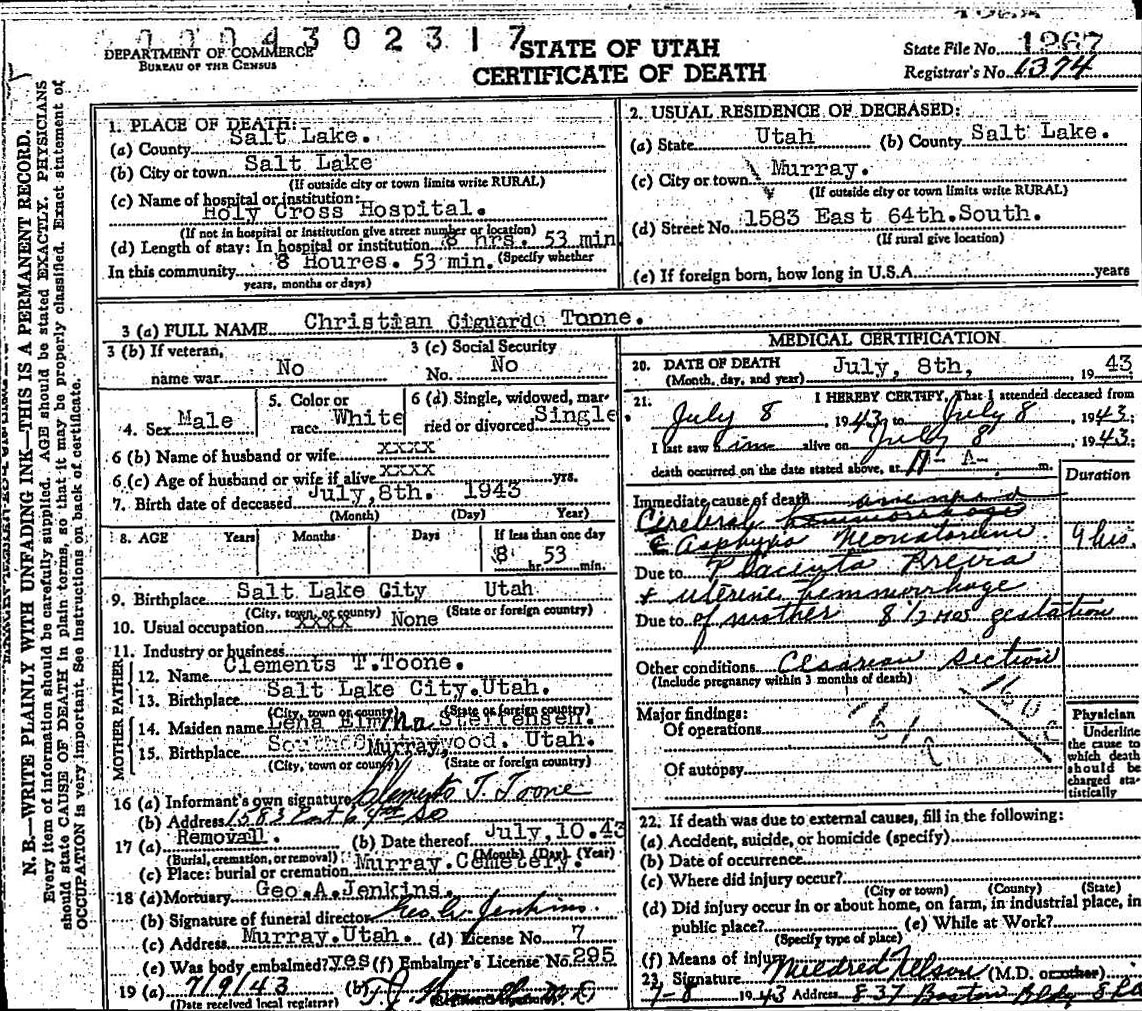 0004302317
DEPARTMENT OF COMMERCE
BUREAU OF THE CENSUS
STATE OF UTAH
CERTIFICATE OF DEATH
State File No. 1267
Registrar's No. 1374
N. B.—WRITE PLAINLY WITH UNFADING INK—THIS IS A PERMANENT RECORD.
Every item of information should be carefully supplied. AGE should be stated EXACTLY. PHYSICIANS
should state CAUSE OF DEATH in plain terms, so that it may be properly classified. Exact statement of
OCCUPATION is very important. See instructions on back of certificate.
1. PLACE OF DEATH:
(a) County Salt Lake.
(b) City or town Salt Lake
(If outside city or town limits write RURAL)
(c) Name of hospital or institution:
Holy Cross Hospital.
(If not in hospital or institution give street number or location)
(d) Length of stay: In hospital or institution 8 hrs. 53 min
In this community 8 Houres. 53 min. (Specify whether
years, months or days)
2. USUAL RESIDENCE OF DECEASED:
(a) State Utah (b) County Salt Lake.
(c) City or town Murray.
(If outside city or town limits write RURAL)
(d) Street No. 1583 East 64th.South.
(If rural give location)
(e) If foreign born, how long in U.S.A. years
3 (a) FULL NAME Christian Ciguardo Toone.
3 (b) If veteran, name war No
3 (c) Social Security No. No
4. Sex Male
5. Color or race White
6 (d) Single, widowed, married or divorced Single
6 (b) Name of husband or wife xxxx
6 (c) Age of husband or wife if alive xxxx yrs.
7. Birth date of deceased July,8th. 1943
(Month) (Day) Year)
8. AGE Years Months Days If less than one day
8 hr. 53 min.
9. Birthplace Salt Lake City Utah
(City, town, or county) (State or foreign country)
10. Usual occupation xxxx None
11. Industry or business
FATHER
12. Name Clements T.Toone.
13. Birthplace Salt Lake City.Utah.
(City, town, or county) (State or foreign country)
MOTHER
14. Maiden name Lena Steffensen.
15. Birthplace Murray, Utah.
(City, town or county) (State or foreign country)
16 (a) Informant's own signature Clements T. Toone
(b) Address 1583 East 64th So
17 (a) Removall. (b) Date thereof July,10.43
(Burial, cremation, or removal) (Month) (Day) (Year)
(c) Place: burial or cremation Murray.Cemetery.
18 (a) Mortuary Geo.A.Jenkins.
(b) Signature of funeral director Geo A. Jenkins.
(c) Address Murray.Utah. (d) License No. 7
(e) Was body embalmed? yes (f) Embalmer's License No. 295
19 (a) 7/9/43 (b)
(Date received local registrar)
MEDICAL CERTIFICATION
20. DATE OF DEATH July, 8th, 19 43
(Month, day, and year)
21. I HEREBY CERTIFY, That I attended deceased from
July 8, 1943 to July 8, 1943;
I last saw him alive on July 8, 1943;
death occurred on the date stated above, at A m.
Duration
Immediate cause of death
Cerebral hemmorrhage
Asphyxia Neonatorum 9 hrs.
Due to Placenta Previa
+ uterine hemmorhage
Due to of mother 8 1/2 mos gestation
Other conditions Cesarean section
(Include pregnancy within 3 months of death)
Major findings:
Of operations
Of autopsy
Physician
Underline
the cause to
which death
should be
charged sta-
tistically
22. If death was due to external causes, fill in the following:
(a) Accident, suicide, or homicide (specify)
(b) Date of occurrence
(c) Where did injury occur?
(City or town) (County) (State)
(d) Did injury occur in or about home, on farm, in industrial place, in
public place? (e) While at Work?
(Specify type of place)
(f) Means of injury
23. Signature Mildred Nelson (M.D. or other)
7-8 1943 Address 837 Boston Bldg